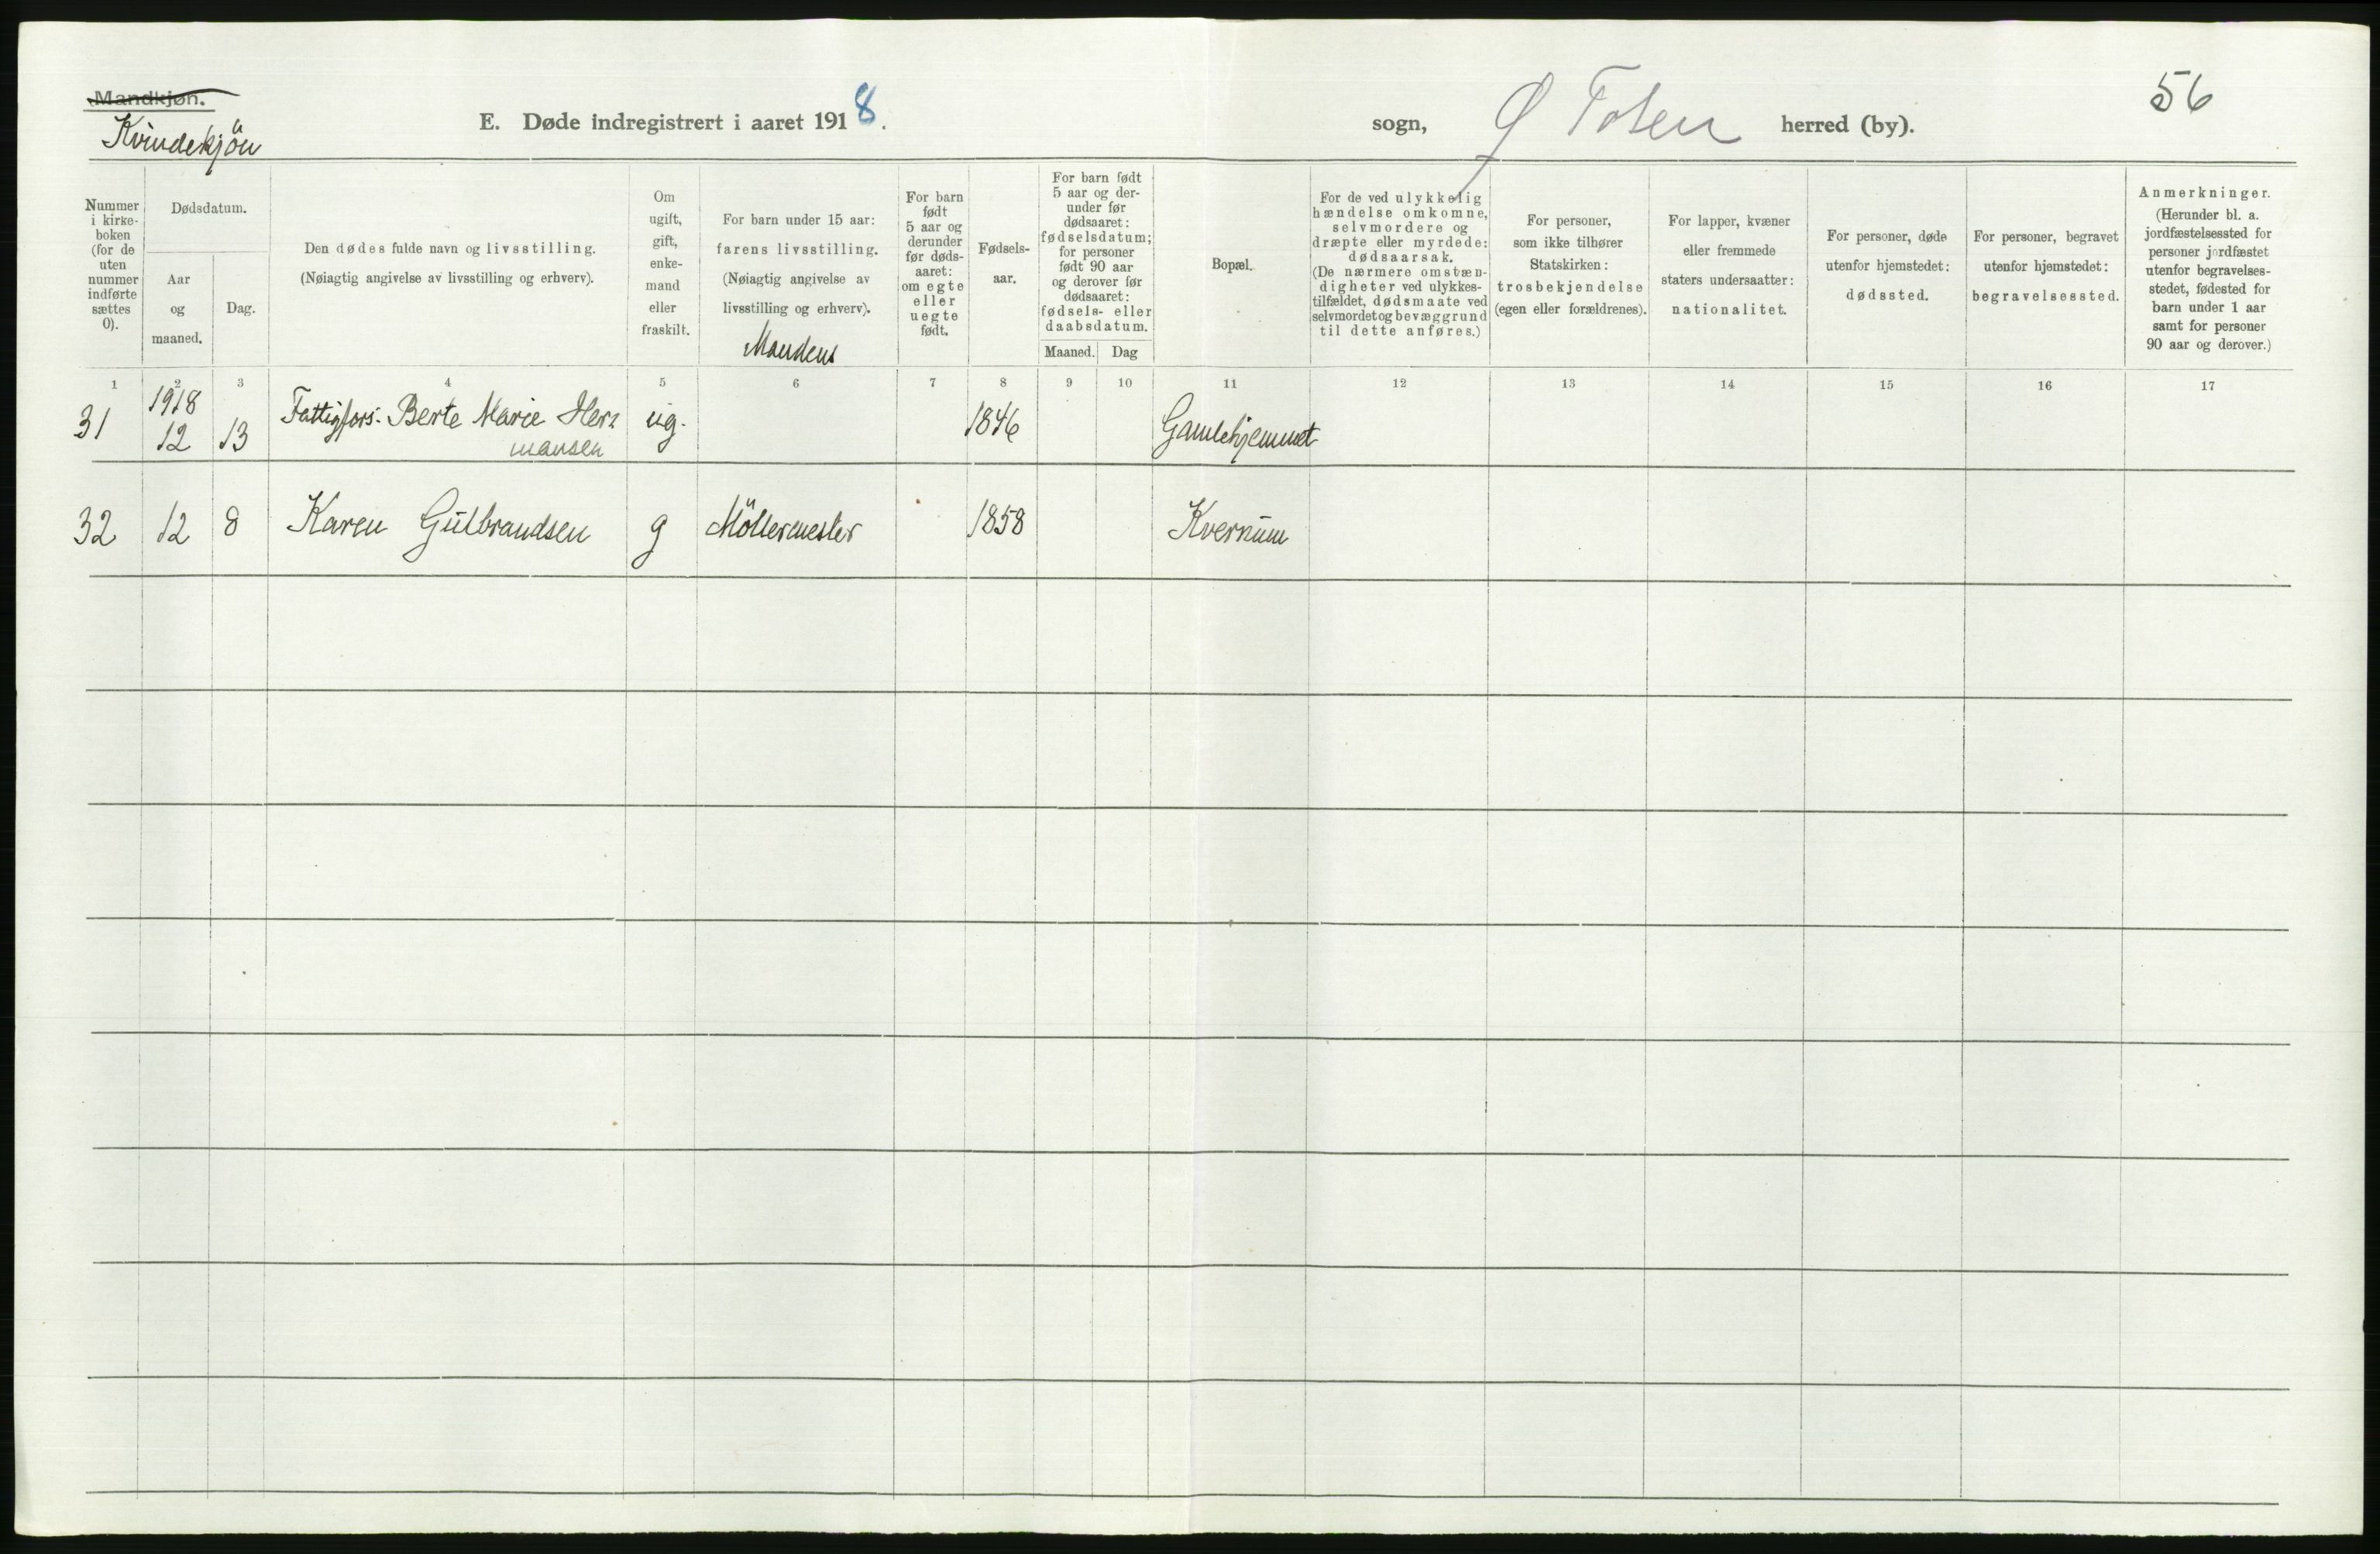 Mandkjøn.
Kvindekjön
E. Døde indregistrert i aaret 1918.
sogn, Ø Toten herred (by).
56
Nummer
i kirke-
boken
(for de
uten
nummer
indførte
sættes
0).
Dødsdatum.
Aar
og
maaned.
Dag.
Den dødes fulde navn og livsstilling.
(Nøiagtig angivelse av livsstilling og erhverv).
Om
ugift,
gift,
enke-
mand
eller
fraskilt.
For barn under 15 aar:
farens livsstilling.
(Nøiagtig angivelse av
livsstilling og erhverv).
Mandens
For barn
født
5 aar og
derunder
før døds-
aaret:
om egte
eller
uegte
født.
Fødsels-
aar.
For barn født
5 aar og der-
under før
dødsaaret:
fødselsdatum;
for personer
født 90 aar
og derover før
dødsaaret:
fødsels- eller
daabsdatum.
Maaned. Dag
Bopæl.
For de ved ulykkelig
hændelse omkomne,
selvmordere og
dræpte eller myrdede:
dødsaarsak.
(De nærmere omstæn-
digheter ved ulykkes-
tilfældet, dødsmaate ved
selvmordet og bevæggrund
til dette anføres.)
For personer,
som ikke tilhører
Statskirken:
trosbekjendelse
(egen eller forældrenes).
For lapper, kvæner
eller fremmede
staters undersaatter:
nationalitet.
For personer, døde
utenfor hjemstedet:
dødssted.
For personer, begravet
utenfor hjemstedet:
begravelsessted.
Anmerkninger.
(Herunder bl. a.
jordfæstelsessted for
personer jordfæstet
utenfor begravelses-
stedet, fødested for
barn under 1 aar
samt for personer
90 aar og derover.)
1 2 3 4 5 6 7 8 9 10 11 12 13 14 15 16 17
1918
31 12 13 Fattigfors. Berte Marie Her= ug. 1846 Gamlehjemmet
mansen
32 12 8 Karen Gulbrandsen g Möllermester 1858 Kvernum